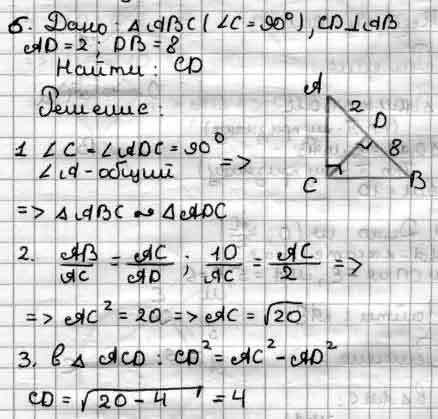 6. Дано: △ABC (∠C=90°), CD⊥AB
AD=2; DB=8
Найти: CD
Решение:
A
2
D
8
C
B
1 ∠C=∠ADC=90°
∠A-общий =>
=> △ABC ∾ △ADC
2. AB/AC = AC/AD ; 10/AC = AC/2 =>
=> AC² = 20 => AC = √20
3. в △ ACD : CD² = AC² - AD²
CD = √20 - 4 = 4